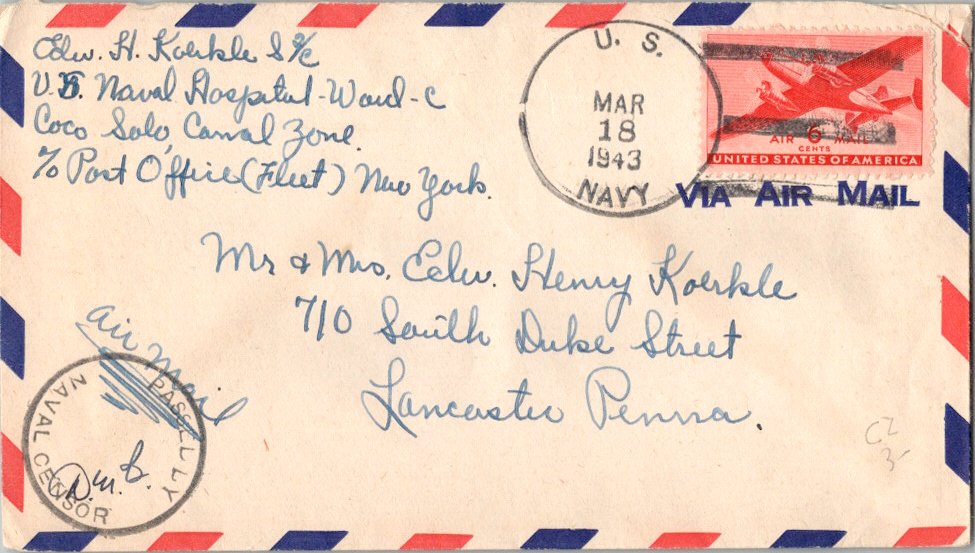 Edw. H. Koerkle S 2/c
U.S. Naval Hospital-Ward-C
Coco Solo, Canal Zone.
c/o Post Office (Fleet) New York.
U. S.
MAR
18
1943
NAVY
AIR 6 MAIL
CENTS
UNITED STATES OF AMERICA
VIA AIR MAIL
Mr & Mrs. Edw. Henry Koerkle
710 South Duke Street
Lancaster Penna.
Air Mail
PASSED BY
NAVAL CENSOR
CZ
3-